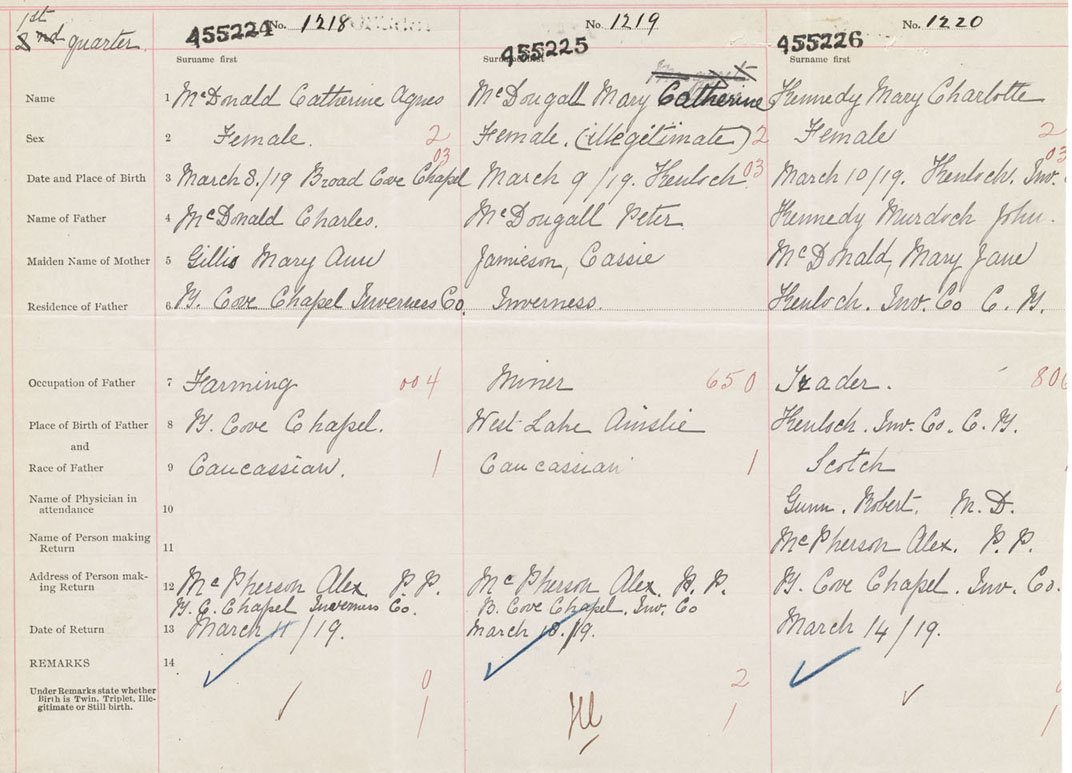 1st
2nd quarter.
455224 No. 1218
No. 1219
455225
No. 1220
455226
Surname first
Surname first
Surname first
Name 1 McDonald Catherine Agnes
McDougall Mary Catherine
Kennedy Mary Charlotte
Sex 2 Female. 2
Female. (illegitimate) 2
Female 2
03
03
03
Date and Place of Birth 3 March 8./19 Broad Cove Chapel
March 9/19. Kenloch
March 10/19. Kenloch. Inv.
Name of Father 4 McDonald Charles.
McDougall Peter
Kennedy Murdoch John.
Maiden Name of Mother 5 Gillis Mary Ann
Jamieson, Cassie
McDonald, Mary Jane
Residence of Father 6 B. Cove Chapel Inverness Co.
Inverness.
Kenloch. Inv. Co C. B.
Occupation of Father 7 Farming 004
Miner 650
Trader. 80
Place of Birth of Father 8 B. Cove Chapel.
West Lake Ainslie
Kenloch. Inv. Co. C. B.
and
Race of Father 9 Caucassian. 1
Caucassian 1
Scotch
Name of Physician in
attendance 10
Gunn. Robert. M. D.
Name of Person making
Return 11
McPherson Alex. P. P.
Address of Person mak-
ing Return 12
McPherson Alex. P. P.
B. C. Chapel Inverness Co.
McPherson Alex. P. P.
B. Cove Chapel. Inv. Co
B. Cove Chapel. Inv. Co.
Date of Return 13 March 11/19.
March 10./19.
March 14/19.
REMARKS 14
Under Remarks state whether
Birth is Twin, Triplet, Ille-
gitimate or Still birth.
0
1
2
Ill
1
1